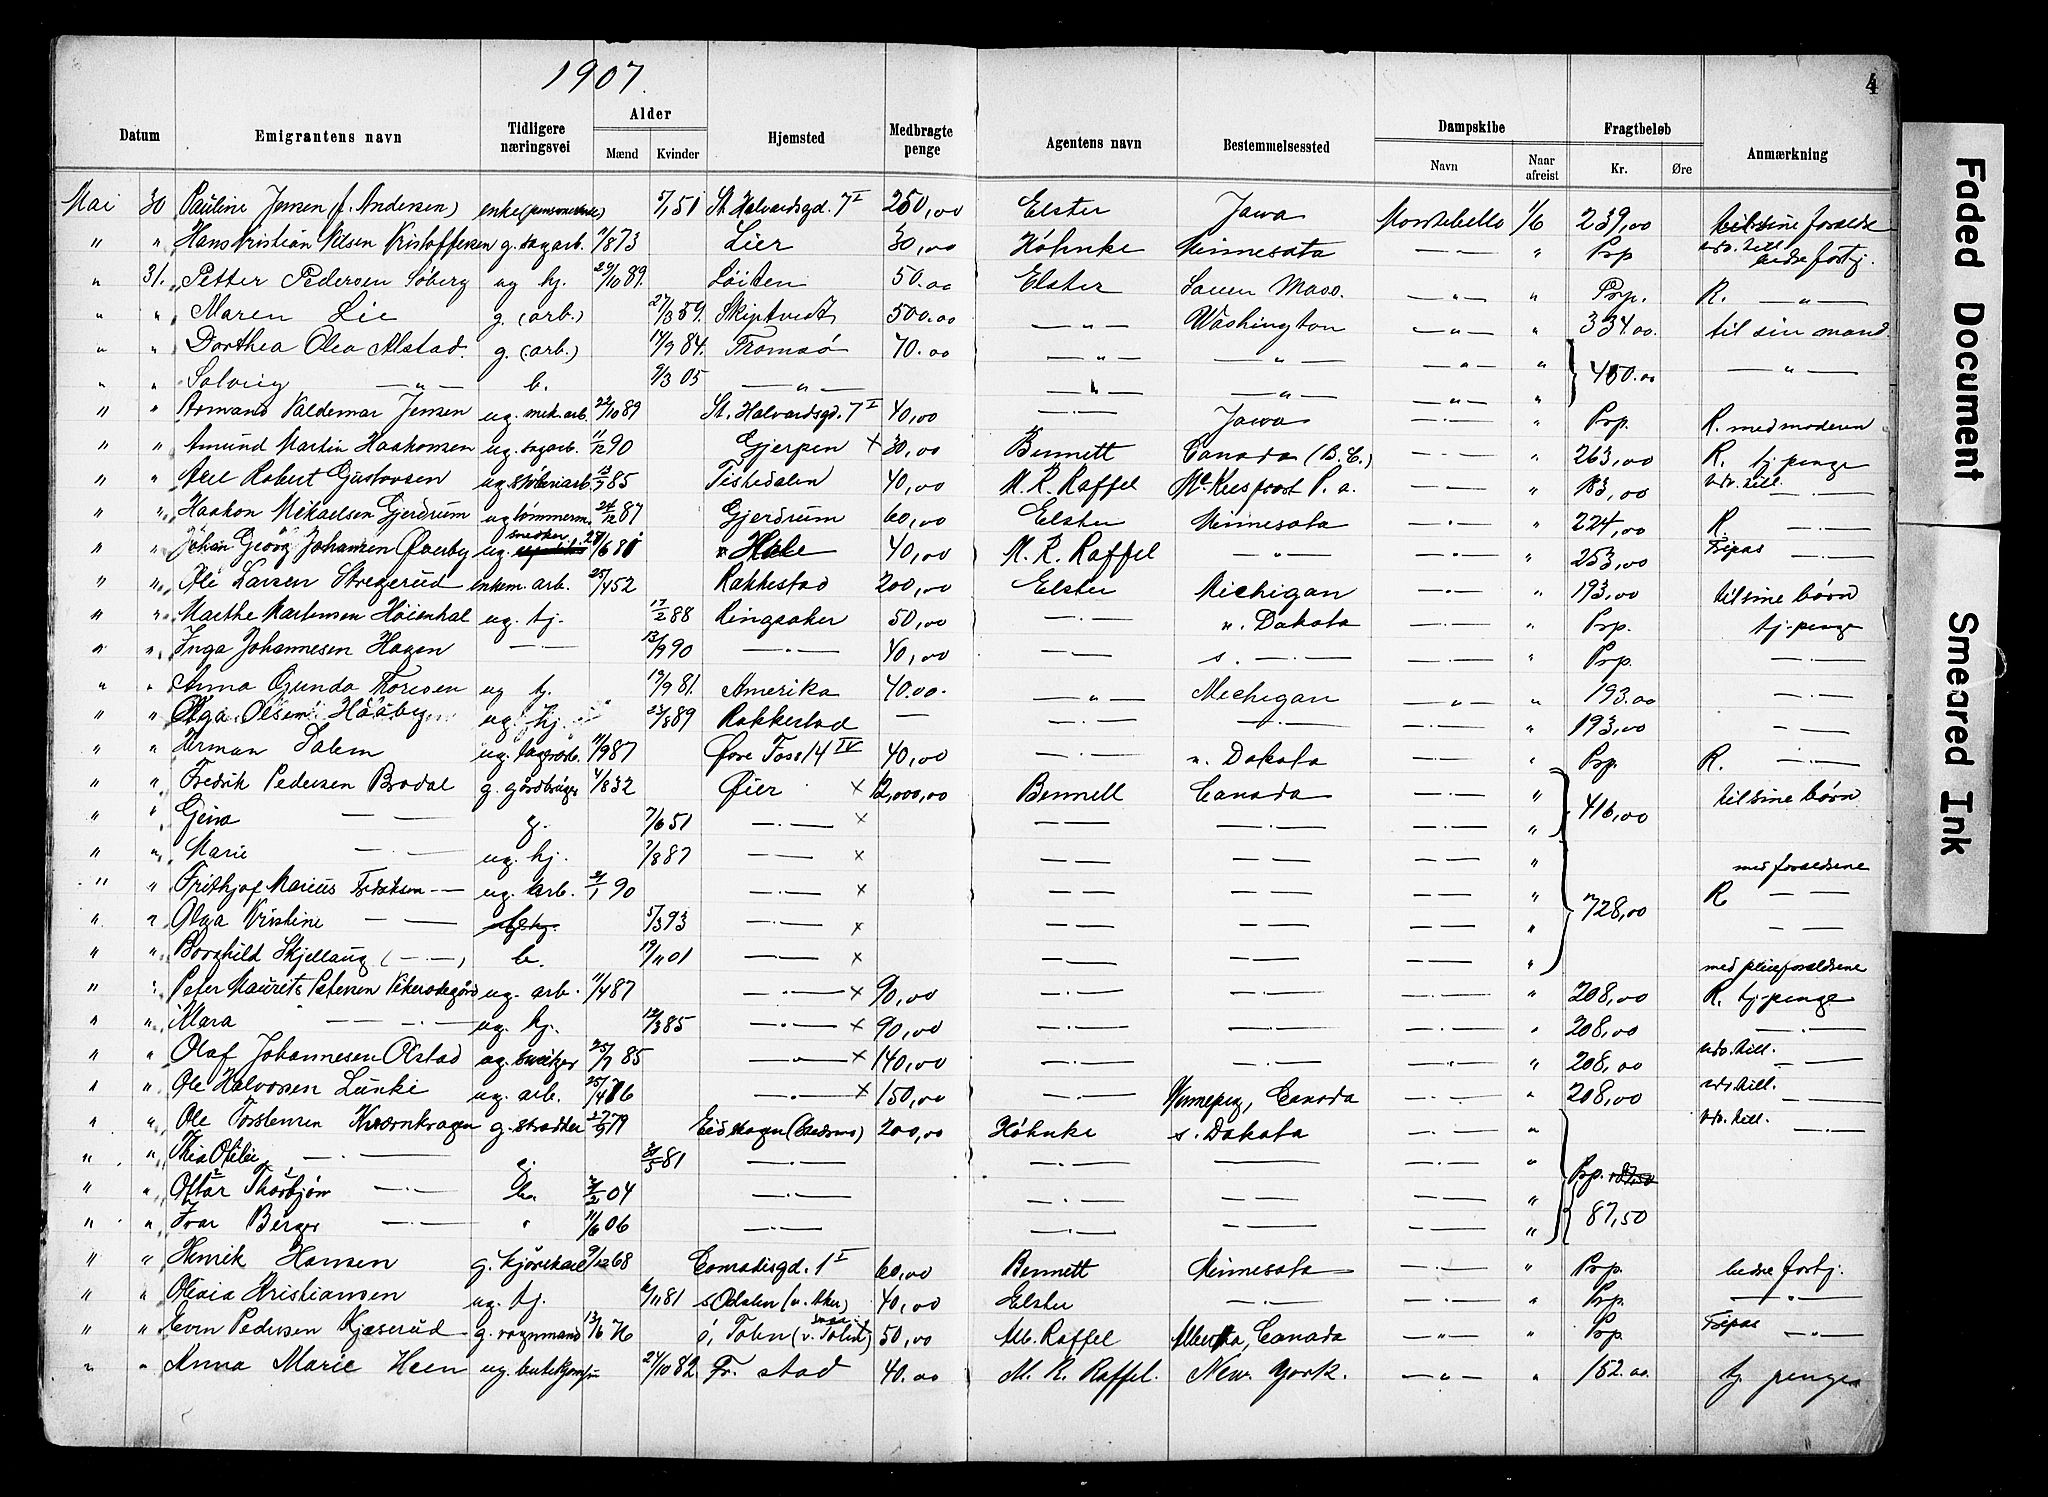 1907.
4
Datum Emigrantens navn Tidligere næringsvei Alder Mænd Kvinder Hjemsted Medbragte penge Agentens navn Bestemmelsessted Dampskibe Navn Naar afreist Fragtbeløb Kr. Øre Anmærkning
Mai 30 Pauline Jensen (f. Andersen) enke 5/1 51 St. Halvardsgd. 7 I 250,00 Elster Jowa Montebello 1/6 239,00 til sine foreldre
" " Hans Kristian Nilsen Kristoffersen g. sagarb. 1/8 73 Lier 30,00 Höhnke Minnesota — " — " Prp udv. till. bedre fortj.
" 31. Petter Pedersen Söberg ug hj. 10 89. Löiten 50.00 Elster Mass. — " — " Prp. R. — " —
" " Maren Lie g. (arb.) 27/3 59. Skiptvedt 500.00 — " — Washington — " — " 334.00. til sin mand.
" " Dorthea Olea Alstad. g. (arb.) 14/9 84. Tromsö 70.00 — " — — " — — " — " 400.00 — " —
" " Solveig — " — b. 9/3 05 — " — — " — — " — — " — "
" " Armand Valdemar Jensen ug. mek. arb. 22/10 89 St. Halvardsgd. 7 I 40,00 — " — Jowa — " — " Prp. R. med moderen
" " Amund Martin Haakonsen ug. sagarb. 11/12 90 Gjerpen × 30,00 Bennett Canada (B.C.) — " — " 263,00 R. tj. penge
" " Robert Gustavsen ug. støberiarb. 85 Tistedalen 40,00 M. R. Raffel Mc Keesport P.a. — " — " 183,00 udv. till.
" " Haakon Mikaelsen Gjerdrum ug tømmerm. 24/12 87 Gjerdrum 60,00 Elster Minnesota — " — " 224,00 R. — " —
" " Johan Georg Johansen Øverby ug. snedker 28/6 81 Hole 40,00 M. R. Raffel — " — — " — " 253,00 Fripas — " —
" " Ole Larsen Stregerud enkem. arb. 25/4 52 Rakkestad 200,00 Elster Michigan — " — " 193,00 til sine børn
" " Marthe Martinsen Höienhal ug. tj. 17/2 88 Ringsaker 50,00 — " — n. Dakota — " — " Prp. tj. penge
" " Inga Johannesen Hagen — " — 13/9 90 — " — 40,00 — " — s. — " — — " — " Prp. — " —
" " Anna Gunda Thoresen ug tj. 17/9 81. Amerika 40.00. — " — Michigan — " — " 193.00 — " —
" " Olga Olsen Haaby ug. hj. 23/8 89 Rakkestad — — " — — " — — " — " 193,00 — " —
" " Herman Salem ug. lagerarb. 11/9 87 Øvre Foss 14 IV 40,00 — " — n. Dakota — " — " Prp. R. — " —
" " Fredrik Pedersen Brodal g. gårdbruger 4/8 32 Øier × 12,000,00 Bennett Canada — " — " 416,00 til sine børn
" " Gina — " — g. 7/6 51 — " — × — — — " — — — "
" " Marie — " — ug. hj. 7/8 87 — — × — — — " — — — " 728,00 med foreldrene
" " Frithjof Marius — — ug. arb. 21/1 90 — " — × — — — — — — " R — " —
" " Olga Kristine — — 5/3 93 — " — × — — — — — — " — — —
" " Borghild Skjellaug (— " —) b. 19/11 01 — " — × — — — — — — " med pleieforeldrene
" " Peter Maurits Petersen ug. arb. 11/4 87 — " — × 90,00 — " — — " — — " — " 208,00 R. tj. penge
" " Mara — " — ug. hj. 12/3 85 — " — × 90,00 — " — — " — — " — " 208,00 — " —
" " Olaf Johannesen Olstad ug. sveitzer 25/7 85 — " — × 140,00 — " — — " — — " — " 208,00 udv. till. — " —
" " Ole Halvorsen Lunke ug. arb. 25/4 — " — × 150,00 Winnepeg, Canada — " — " 208,00 udv. till. — " —
" " Ole Torstensen Kværnkragen g. skrædder 79 Eidskogen 200,00 Höhnke s. Dakota — " — " udv. till. — " —
" " Thea Otilie — " — g. 31/5 81 — " — — " — — — — " — " Prp.
" " Ottar Thorbjørn — " — b. 04 — " — — " — — — — " — " 87,50
" " Ivar Berger — " — " 11/6 06 — " — — " — — — — " — "
" " Henrik Hansen g. kjørekarl 9/12 68 Conradisgd. 1 I 60,00 Bennett Minnesota — " — " Prp. bedre fortj.
" " Olava Kristiansen ug. tj. 6/11 81 s. Odalen (v. Aker) 40,00 Elster — " — — " — " Prp. — " —
" " Even Pedersen Kjæserud g. vognmand 13/6 76 ö. Toten 50,00 M. R. Raffel Alberta, Canada — " — " Prp. Fripas — " —
" " Anna Marie Heen ug. 24/10 82 Fr. stad 40.00 M. R. Raffel. New. York. — " — " 152.00. tj. penge
Faded Document
Smeared Ink